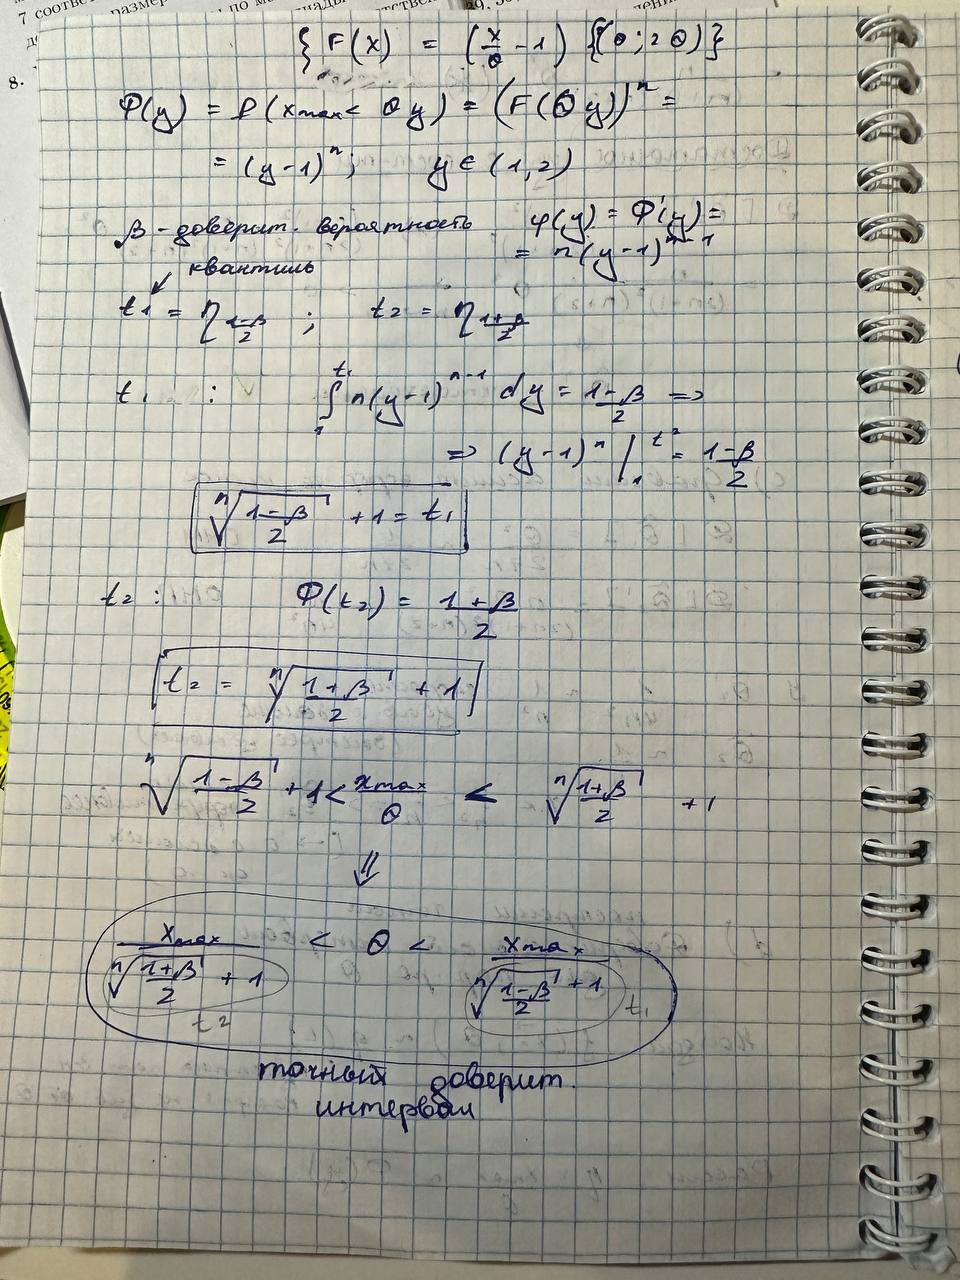 7 соответ
размер
по м
8.
{ F(x) = (x/θ - 1) {(θ; 2θ)}
Φ(y) = P(xmax < θy) = (F(θy))^n =
= (y-1)^n; y ∈ (1,2)
β - доверит. вероятность φ(y) = Φ'(y) =
= n(y-1)^{n-1}
квантиль
t1 = η_{(1-β)/2} ; t2 = η_{(1+β)/2}
t1 : ∫_1^{t1} n(y-1)^{n-1} dy = (1-β)/2 =>
=> (y-1)^n |_1^{t2} = (1-β)/2
ⁿ√((1-β)/2) + 1 = t1
t2 : Φ(t2) = (1+β)/2
t2 = ⁿ√((1+β)/2) + 1
ⁿ√((1-β)/2) + 1 < xmax/θ < ⁿ√((1+β)/2) + 1
⇓
xmax/(ⁿ√((1+β)/2) + 1) < θ < xmax/(ⁿ√((1-β)/2) + 1)
t2 t1
точный доверит.
интервал